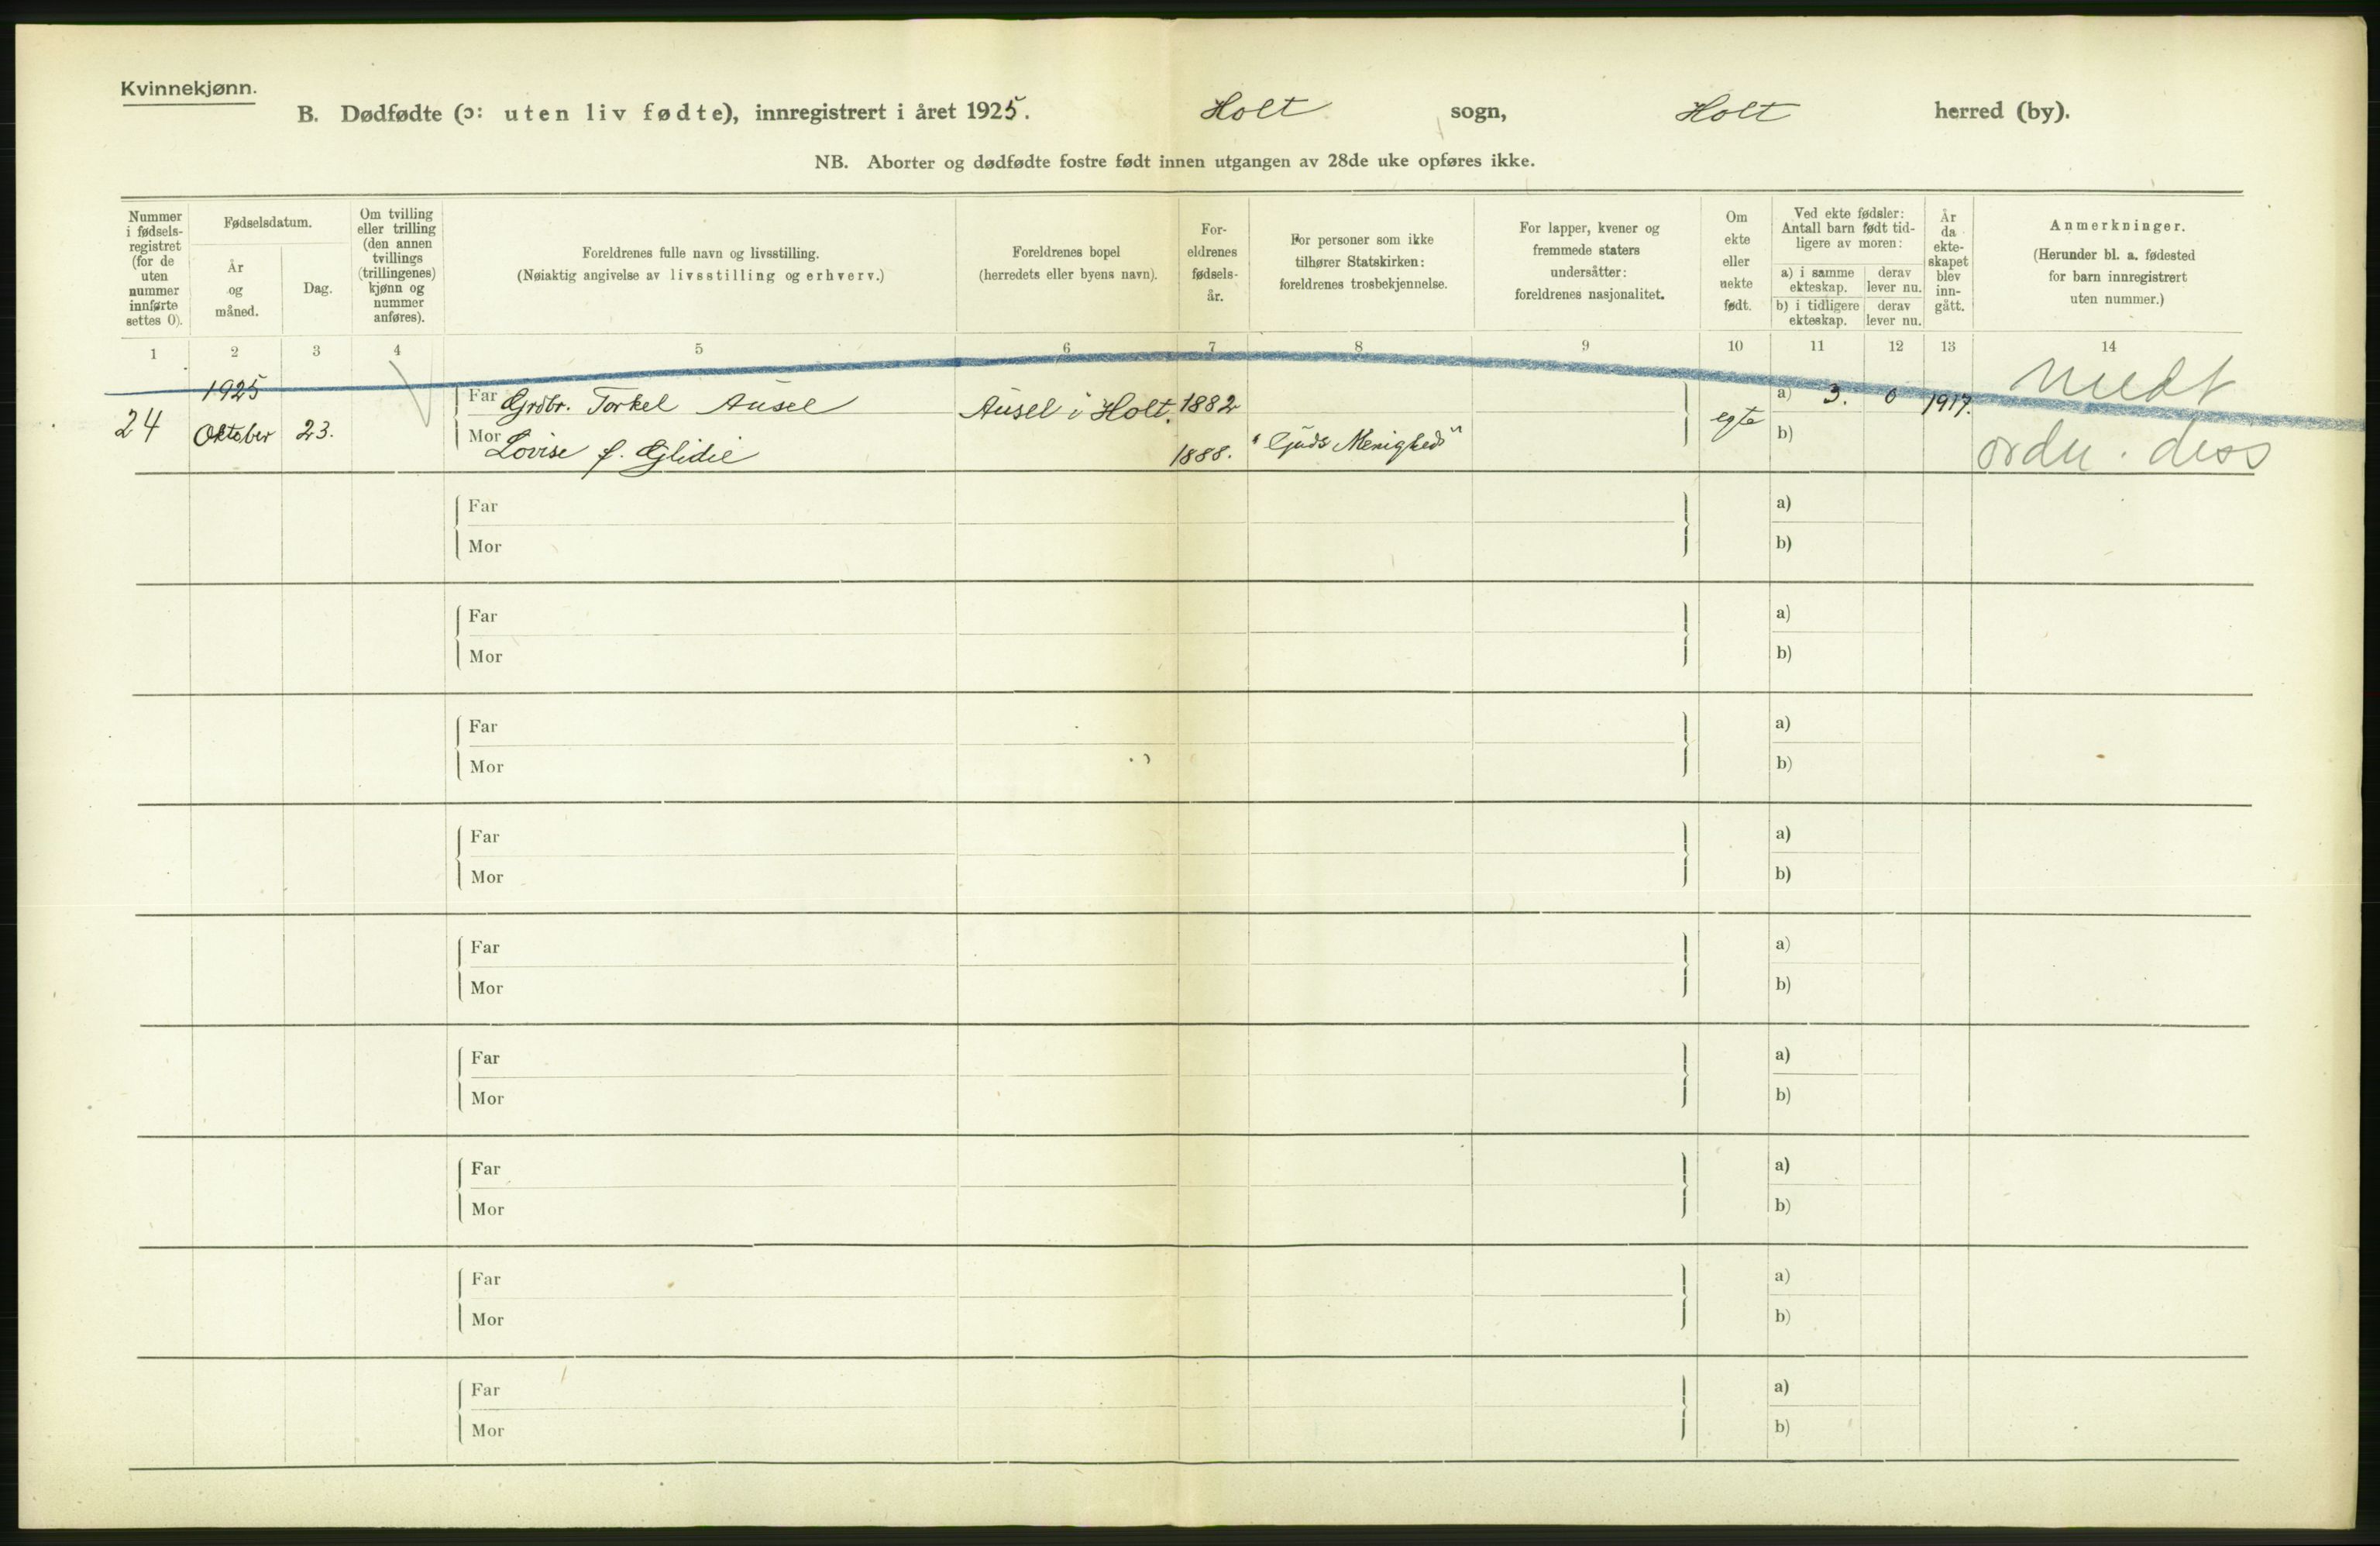 Kvinnekjønn.
B. Dødfødte (ɔ: uten liv fødte), innregistrert i året 1925. Holt sogn, Holt herred (by).
NB. Aborter og dødfødte fostre født innen utgangen av 28de uke opføres ikke.
Nummer i fødsels-registret (for de uten nummer innførte settes 0).
Fødselsdatum.
År og måned.
Dag.
Om tvilling eller trilling (den annen tvillings (trillingenes) kjønn og nummer anføres).
Foreldrenes fulle navn og livsstilling.
(Nøiaktig angivelse av livsstilling og erhverv.)
Foreldrenes bopel
(herredets eller byens navn).
For-eldrenes fødsels-år.
For personer som ikke tilhører Statskirken: foreldrenes trosbekjennelse.
For lapper, kvener og fremmede staters undersåtter: foreldrenes nasjonalitet.
Om ekte eller uekte født.
Ved ekte fødsler: Antall barn født tid-ligere av moren:
a) i samme ekteskap.
derav lever nu.
b) i tidligere ekteskap.
derav lever nu.
År da ekte-skapet blev inn-gått.
Anmerkninger.
(Herunder bl. a. fødested for barn innregistrert uten nummer.)
1 2 3 4 5 6 7 8 9 10 11 12 13 14
24 1925 Oktober 23.
Far Grdbr. Torkel Ausel Ausel i Holt. 1882 egte a) 3. 0 1917.
Mor Lovise f. Glidie 1888. "Guds Menighed" b)
Far a)
Mor b)
Far a)
Mor b)
Far a)
Mor b)
Far a)
Mor b)
Far a)
Mor b)
Far a)
Mor b)
Far a)
Mor b)
Far a)
Mor b)
Far a)
Mor b)